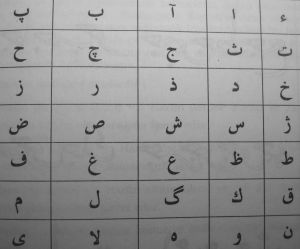 ء ا آ ب پ
ت ث ج چ ح
خ د ذ ر ز
ژ س ش ص ض
ط ظ ع غ ف
ق ك گ ل م
ن و ه لا ی